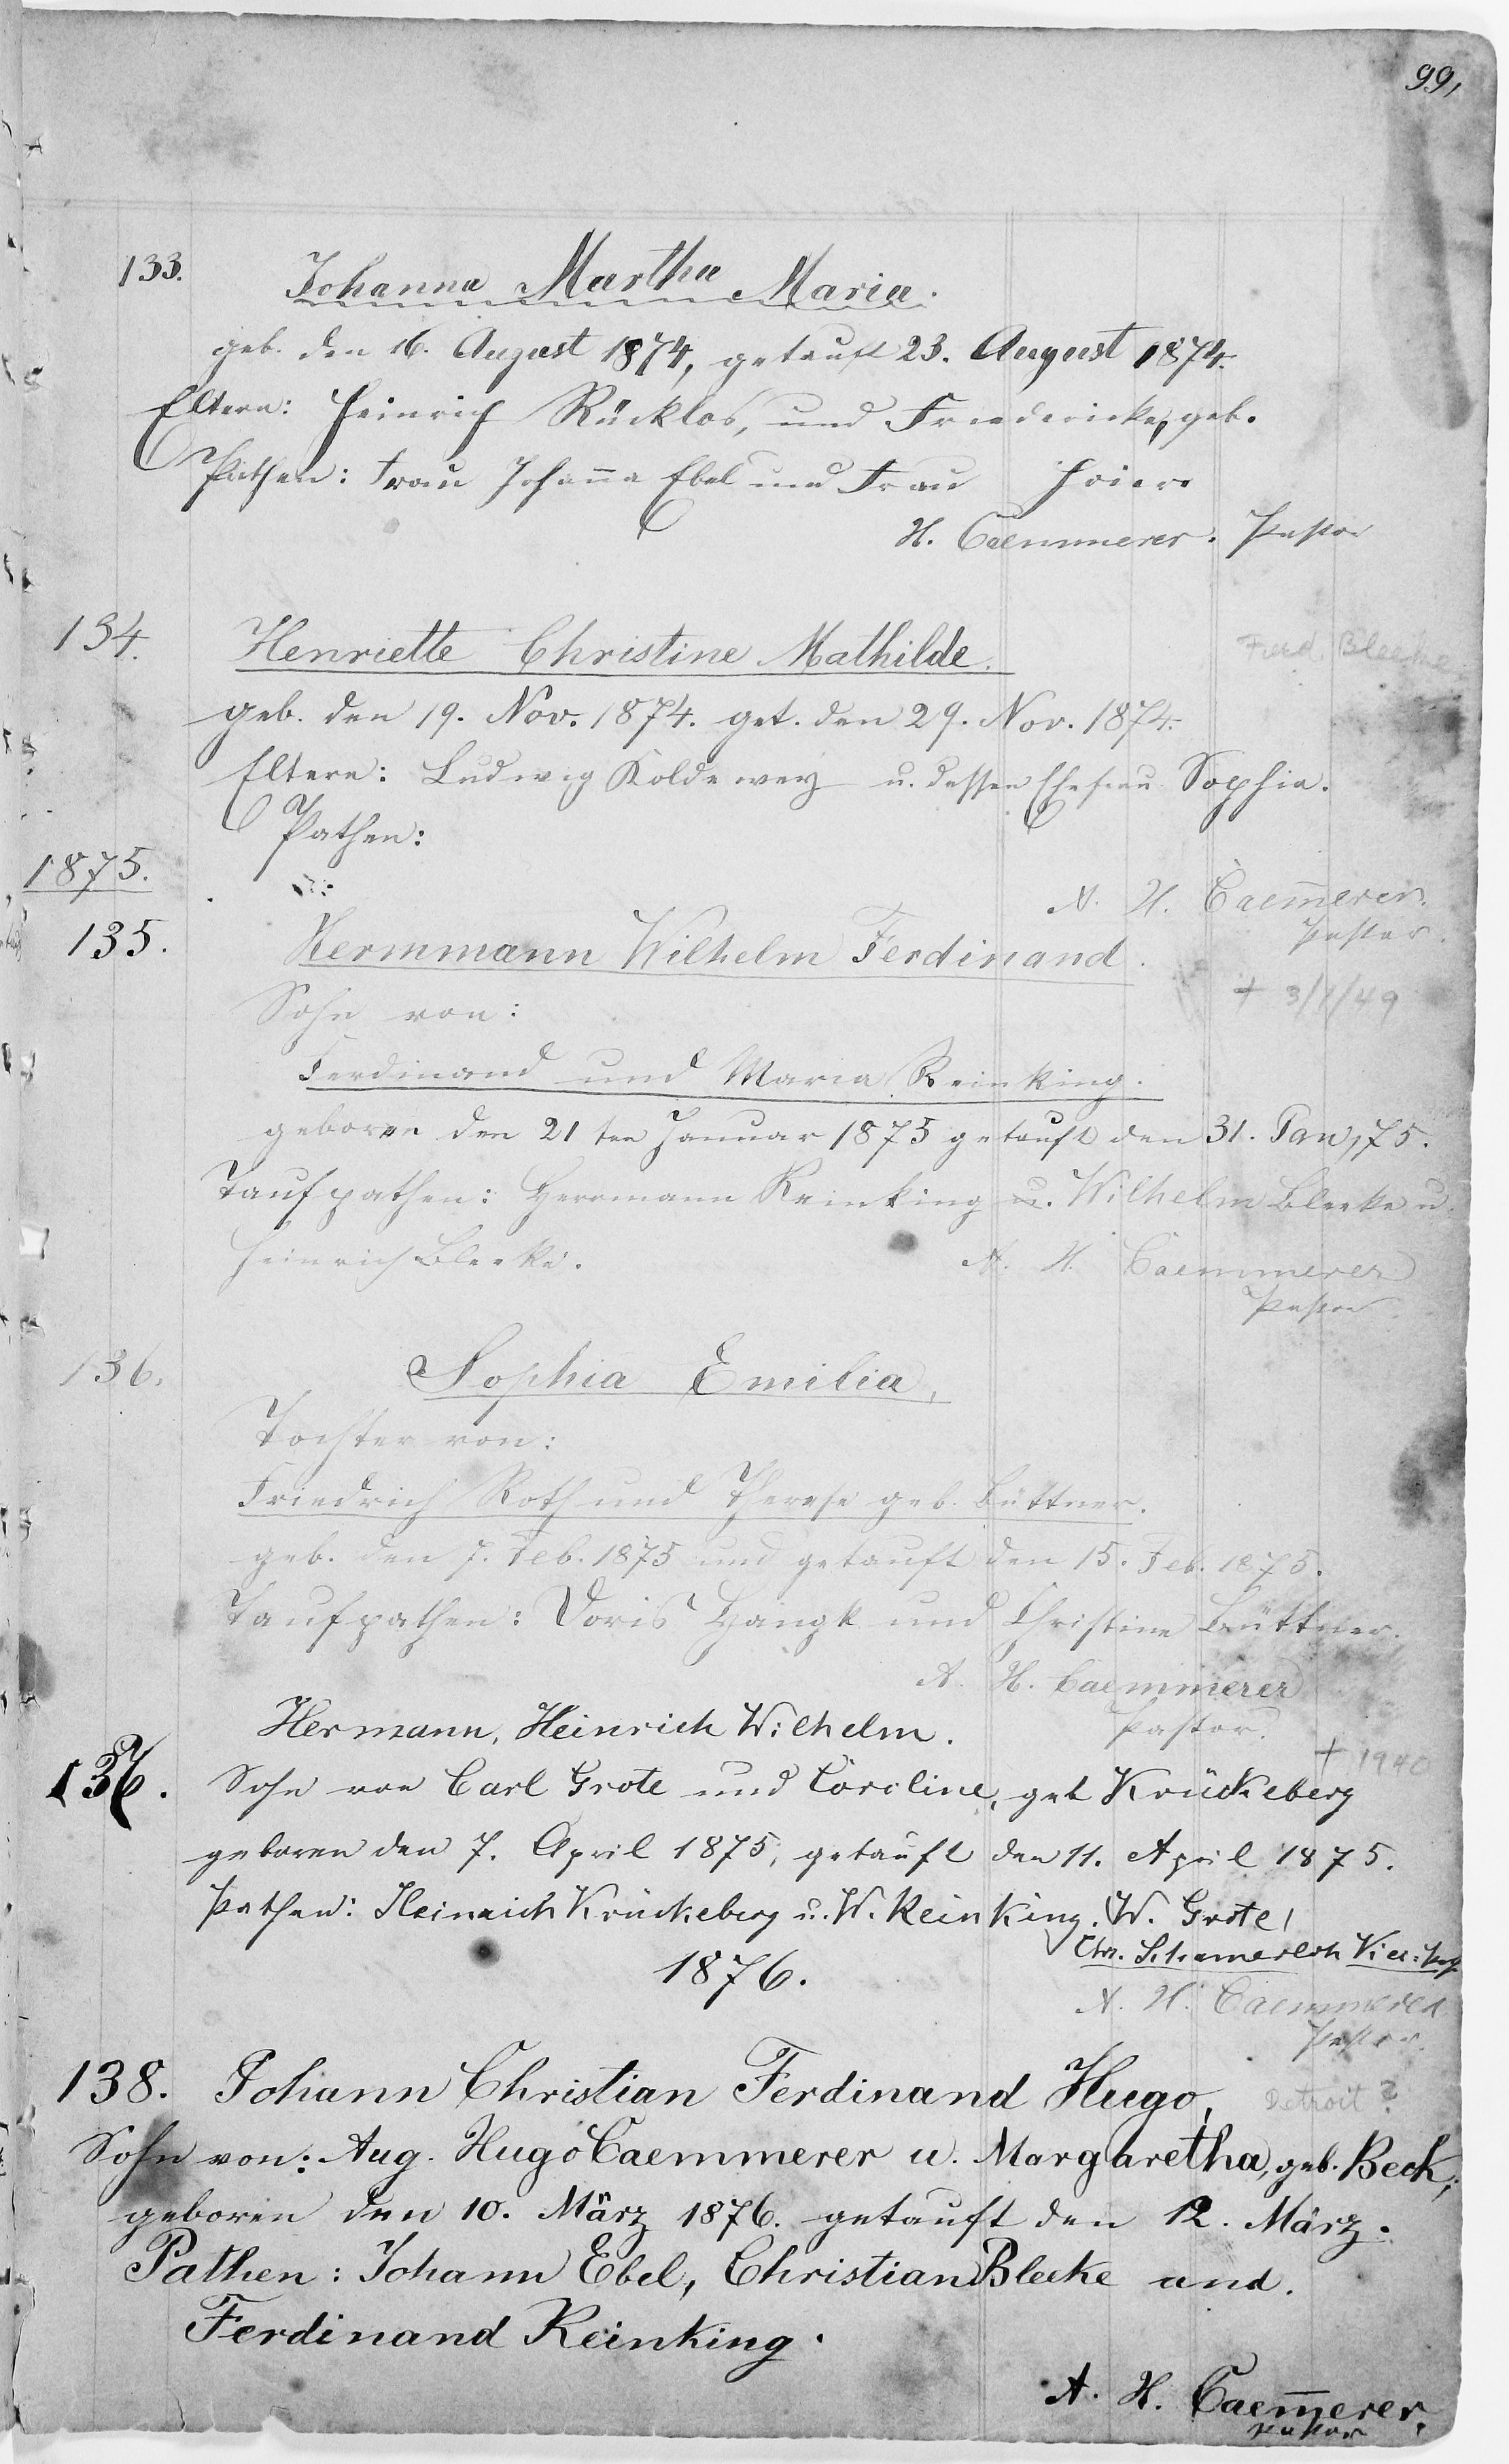 99,
133. Johanna Martha Maria.
geb. den 16. August 1874, getauft 23. August 1874.
Eltern: Heinrich Rücklos, und Friedericke, geb.
Pathen: Frau Johanna Ebel und Frau Hoier
H. Caemmerer. Pastor
134. Henriette Christine Mathilde.
Ferd. Bleeke
geb. den 19. Nov. 1874. get. den 29. Nov. 1874.
Eltern: Ludwig Koldewey u. dessen Ehefrau Sophia.
Pathen:
1875.
A. H. Caem̄erer.
Pastor.
135. Hermmann Wilhelm Ferdinand.
+ 3/1/49
Sohn von:
Ferdinand und Maria Reinking.
geboren den 21ten Januar 1875 getauft den 31. Jan, 75.
Taufpathen: Herrmann Reinking u. Wilhelm Bleeke u.
Heinrich Bleeke.
A. H. Caemmerer
Pastor
136. Sophia Emilia,
Tochter von:
Friedrich Roth und Therese geb. Büttner.
geb. den 7. Feb. 1875 und getauft den 15. Feb. 1875.
Taufpathen: Doris und Christine Büttner.
A. H. Caemmerer
Pastor.
Hermann, Heinrich Wilhelm.
+ 1940
137. Sohn von Carl Grote und Caroline, geb Krückeberg
geboren den 7. April 1875, getauft den 11. April 1875.
Pathen: Heinrich Krückeberg u. W. Reinking. W. Grote,
Chr.
1876.
A. H. Caemmerer
Pastor.
138. Johann Christian Ferdinand Hugo,
Detroit ?
Sohn von: Aug. Hugo Caemmerer u. Margaretha, geb. Beck;
geboren den 10. März 1876. getauft den 12. März.
Pathen: Johann Ebel, Christian Bleeke und.
Ferdinand Reinking.
A. H. Caem̄erer.
Pastor